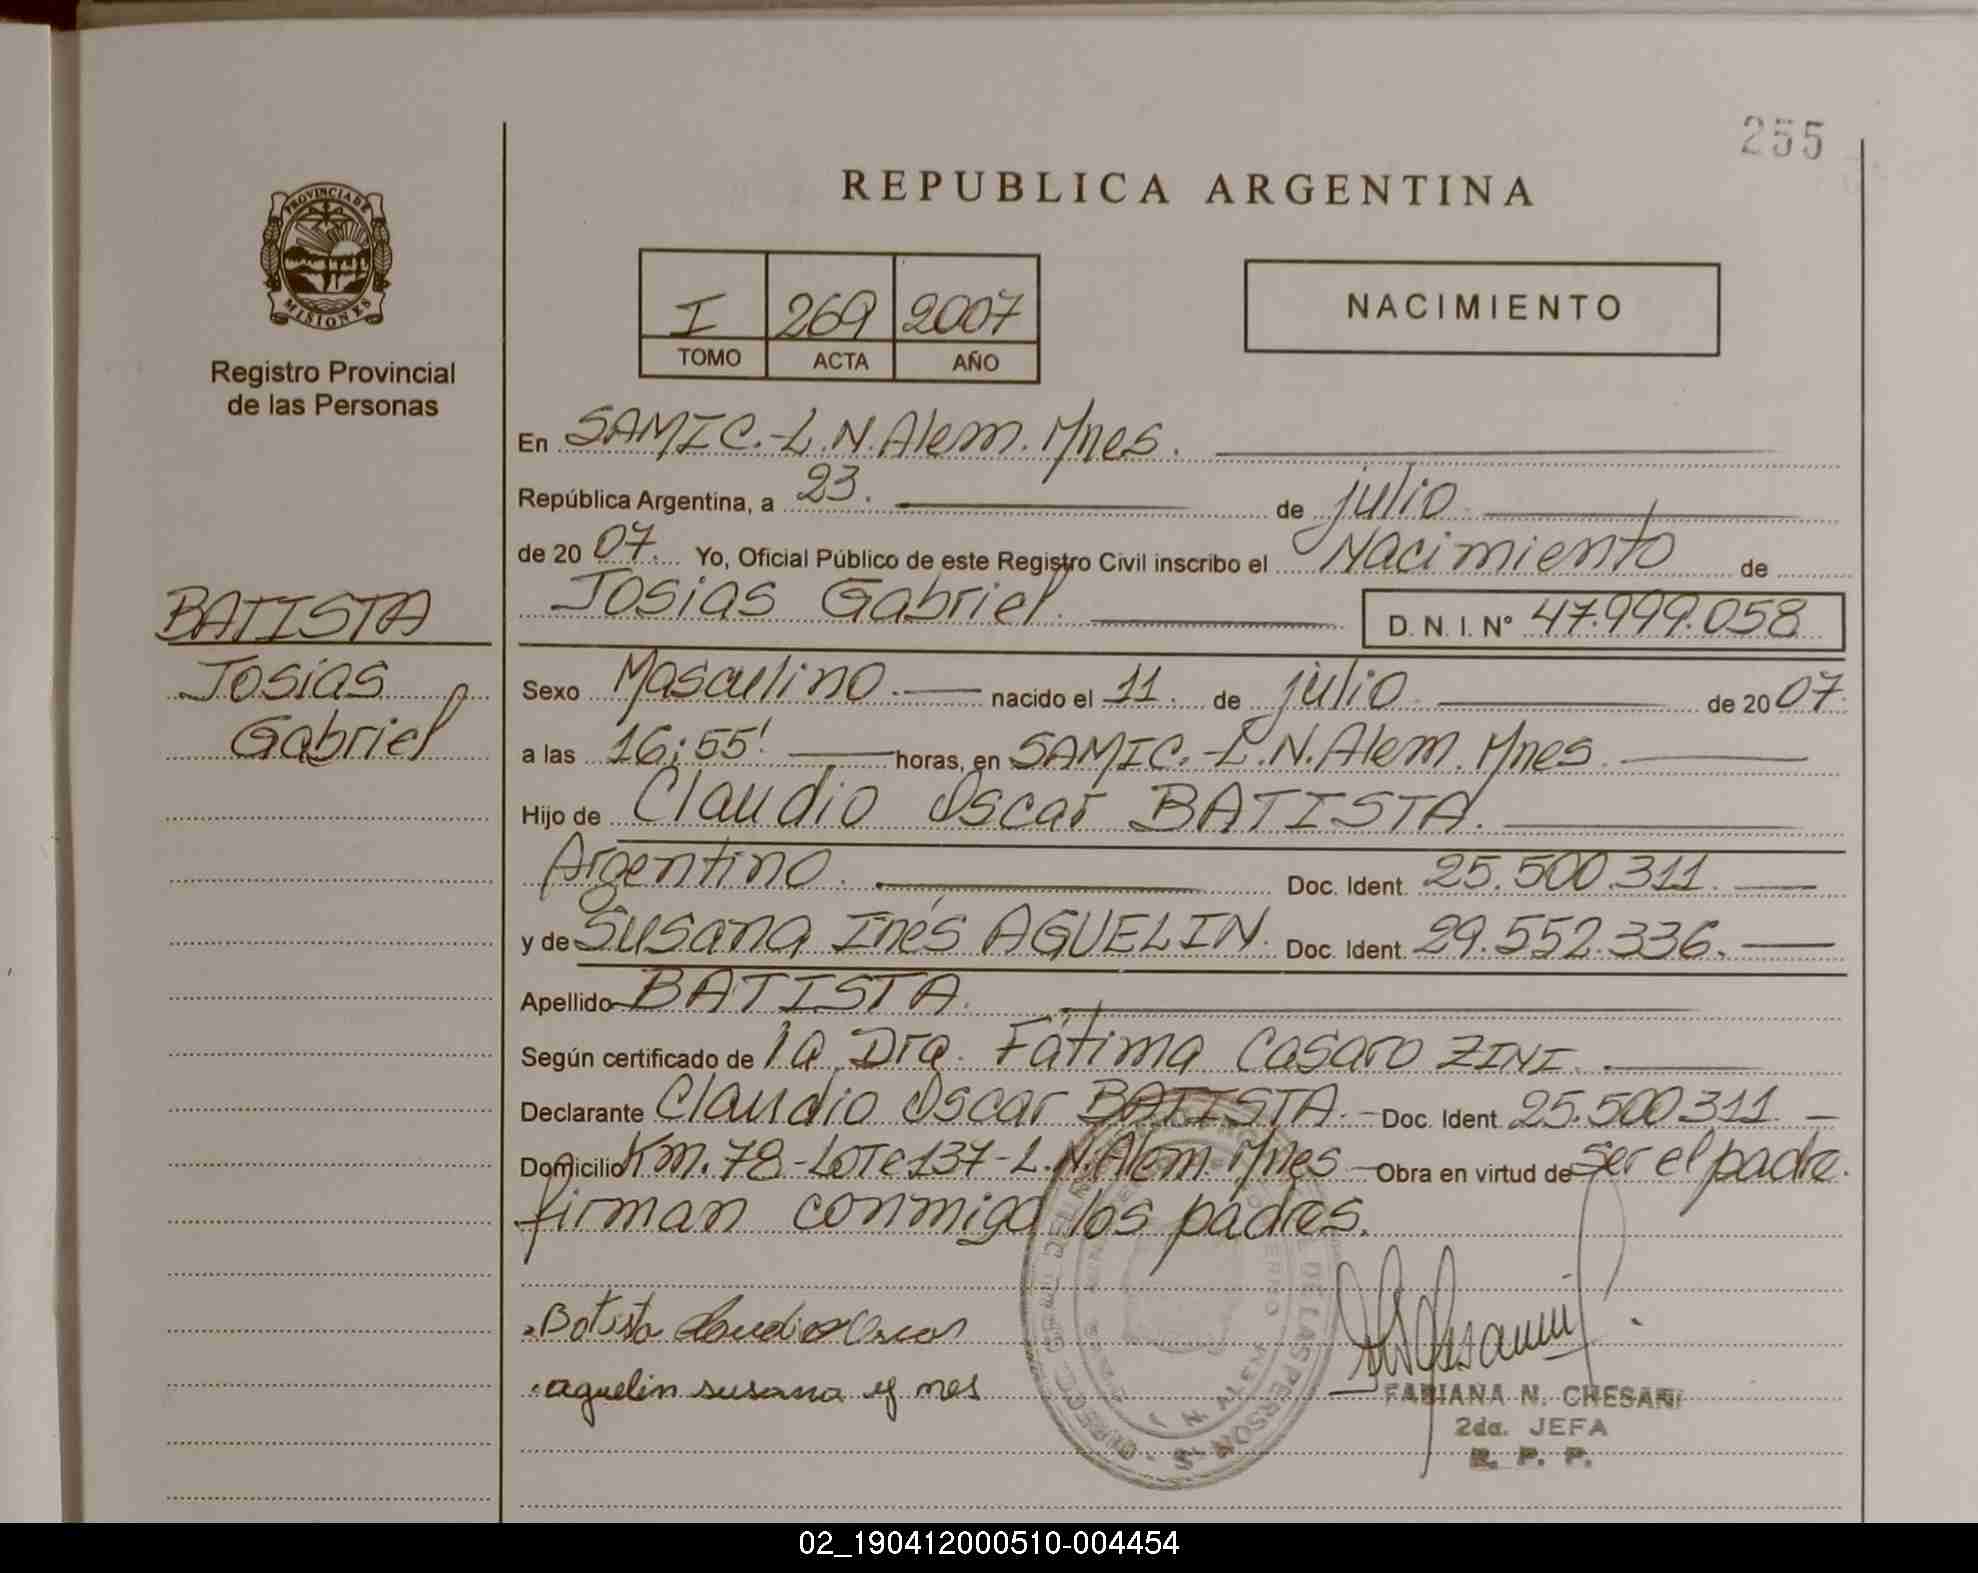 255
REPUBLICA ARGENTINA
PROVINCIA DE
MISIONES
Registro Provincial
de las Personas
I 269 2007
TOMO ACTA AÑO
NACIMIENTO
En SAMIC.-L.N.Alem. Mnes.
República Argentina, a 23. de julio
de 20 07. Yo, Oficial Público de este Registro Civil inscribo el Nacimiento de
Josias Gabriel. D. N. I. N° 47.999.058
BATISTA
Josias
Gabriel
Sexo Masculino. nacido el 11. de julio de 20 07.
a las 16:55' horas, en SAMIC.-L.N.Alem. Mnes.
Hijo de Claudio Oscar BATISTA.
Argentino. Doc. Ident. 25.500.311.
y de Susana Inés AGUELIN. Doc. Ident. 29.552.336.
Apellido BATISTA.
Según certificado de la Dra. Fátima Casaro ZINI.
Declarante Claudio Oscar BATISTA. Doc. Ident. 25.500.311.
Domicilio Km. 78-Lote 137-L.N.Alem. Mnes. Obra en virtud de ser el padre.
firman conmigo los padres.
Batista Claudio Oscar
aguelin susana y nes
FABIANA N. CHESANI
2da. JEFA
R. P. P.
02_190412000510-004454